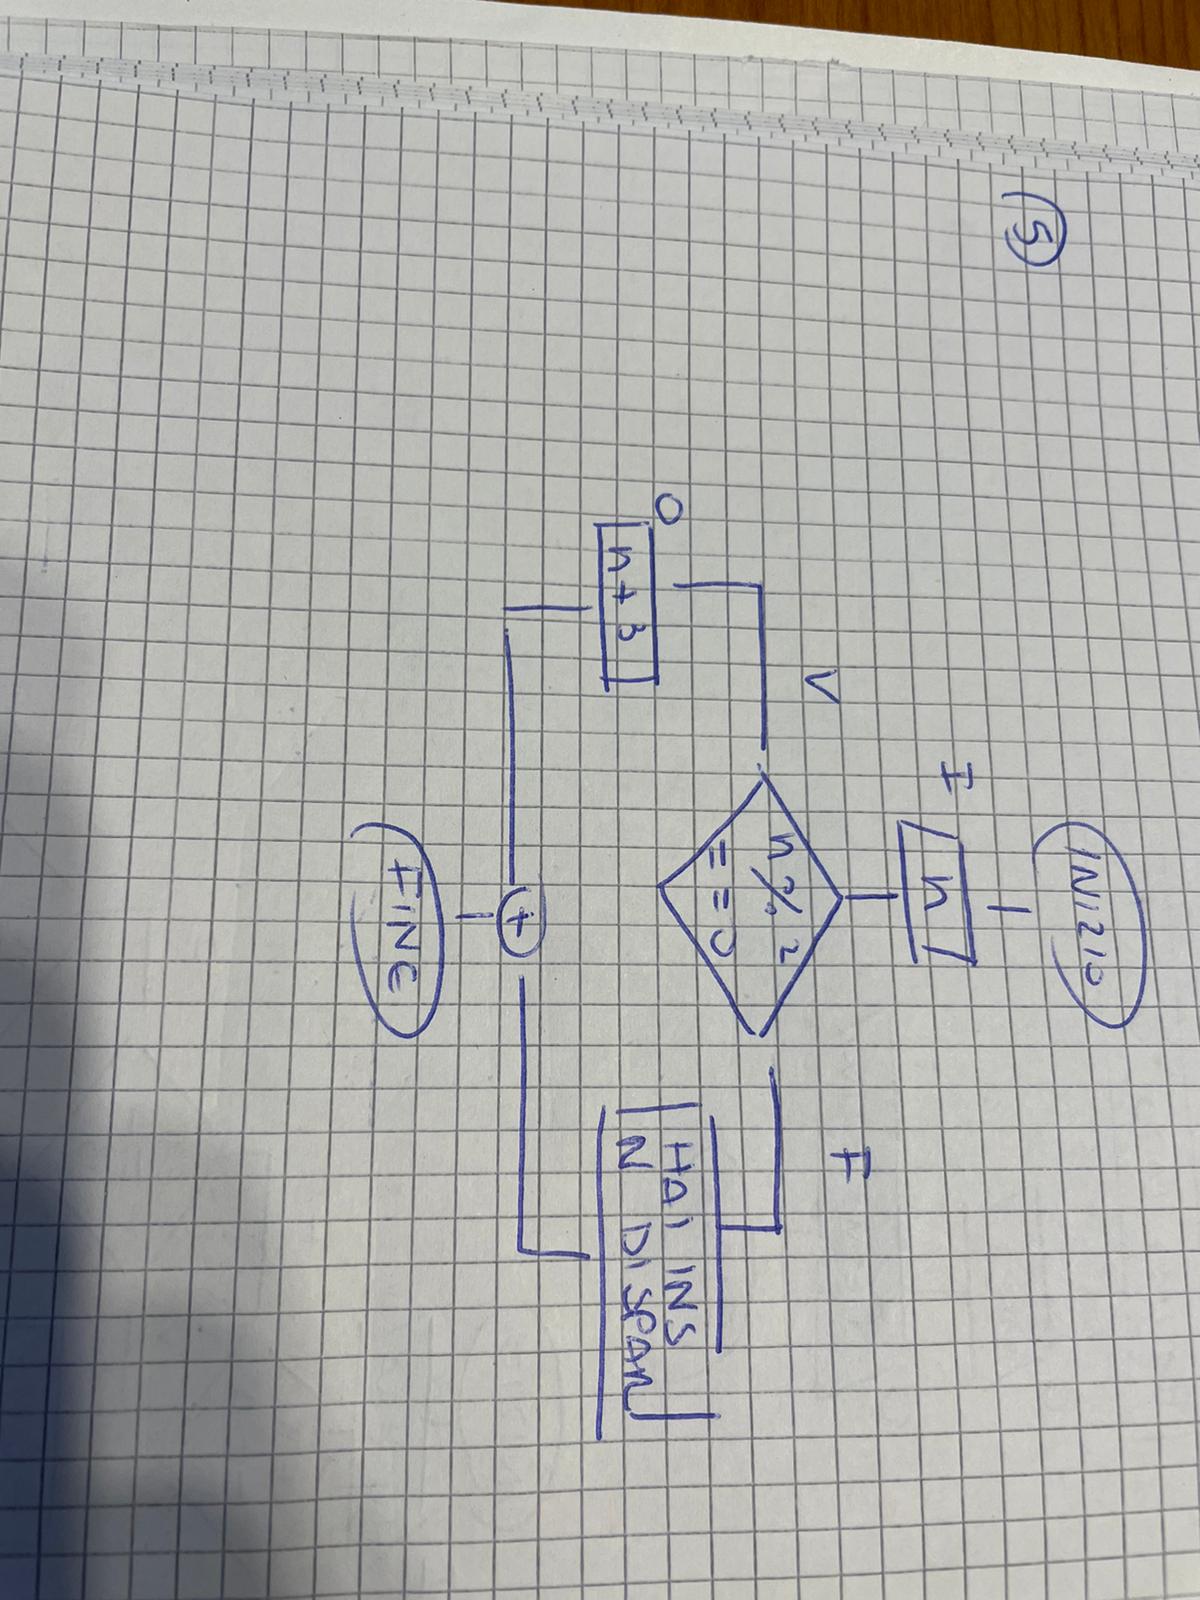 5
INIZIO
I
n
V
F
n % 2
= = 0
O
n + 3
HAI INS
N DISPARI
+
FINE